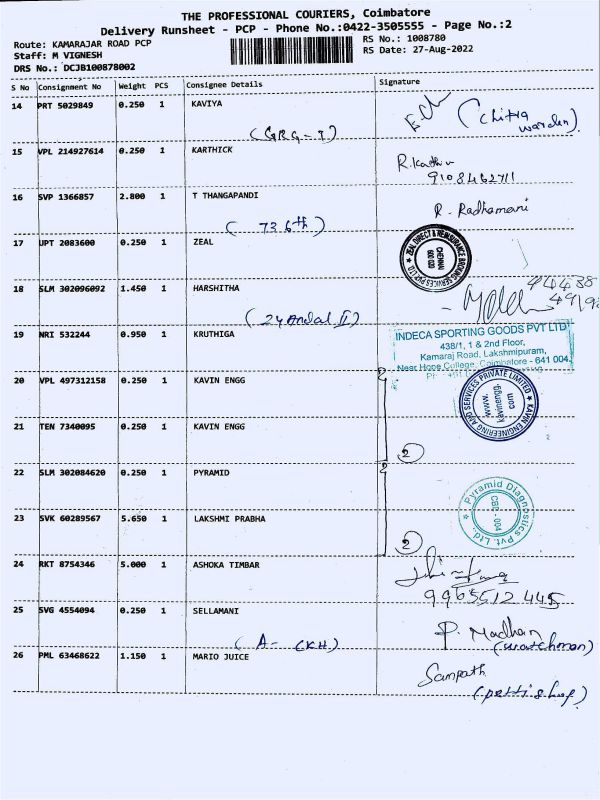 THE PROFESSIONAL COURIERS, Coimbatore
Delivery Runsheet - PCP - Phone No.:0422-3505555 - Page No.:2
Route: KAMARAJAR ROAD PCP
RS No.: 1008780
Staff: M VIGNESH
RS Date: 27-Aug-2022
DRS No.: DCJB100878002
S No Consignment No Weight PCS Consignee Details Signature
14 PRT 5029849 0.250 1 KAVIYA
(Chitra
warden)
(GRG-I)
15 VPL 214927614 0.250 1 KARTHICK
9108462711
16 SVP 1366857 2.800 1 T THANGAPANDI
R. Radhamani
(73 6th)
17 UPT 2083600 0.250 1 ZEAL
ZEAL DIRECT & REINSURANCE BROKING SERVICES PVT LTD
CHENNAI
600 020
18 SLM 302096092 1.450 1 HARSHITHA
(24 Andal II)
19 NRI 532244 0.950 1 KRUTHIGA
INDECA SPORTING GOODS PVT LTD
438/1, 1 & 2nd Floor,
Kamaraj Road, Lakshmipuram,
Near Hope College, Coimbatore - 641 004.
20 VPL 497312158 0.250 1 KAVIN ENGG
KAVIN ENGINEERING AND SERVICES PRIVATE LIMITED
www.
kavinengg
com
21 TEN 7340095 0.250 1 KAVIN ENGG
2
22 SLM 302084620 0.250 1 PYRAMID
Pyramid Diagnostics Pvt. Ltd.
CBC - 004
23 SVK 60289567 5.650 1 LAKSHMI PRABHA
2
24 RKT 8754346 5.000 1 ASHOKA TIMBAR
9965512445
25 SVG 4554094 0.250 1 SELLAMANI
P. Madhan
(watchman)
(A- (KH)
26 PML 63468622 1.150 1 MARIO JUICE
Sampath
(petti shop)